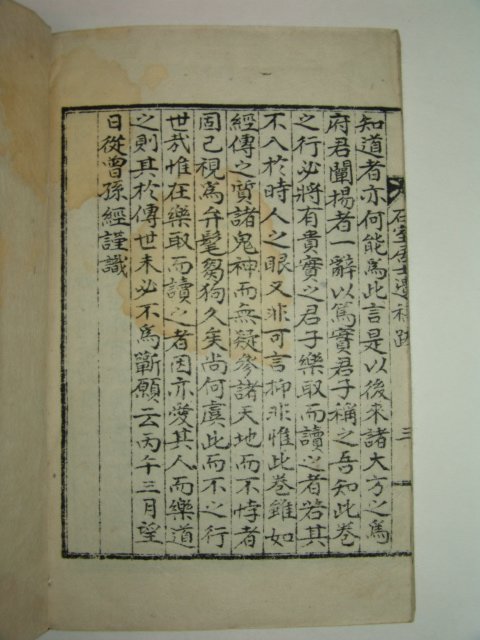 石室居士遺稿跋
三
知道者亦何能爲此言是以後來諸大方之爲
府君闡揚者一辭以篤實君子稱之吾知此卷
之行必將有貴實之君子樂取而讀之者若其
不入於時人之眼又非可言抑非惟此卷雖如
經傳之質諸鬼神而無疑參諸天地而不悖者
固已視爲弁髦芻狗久矣尚何虞此而不之行
世哉惟在樂取而讀之者因亦愛其人而樂道
之則其於傳世未必不爲斷願云丙午三月望
日從曾孫經謹識